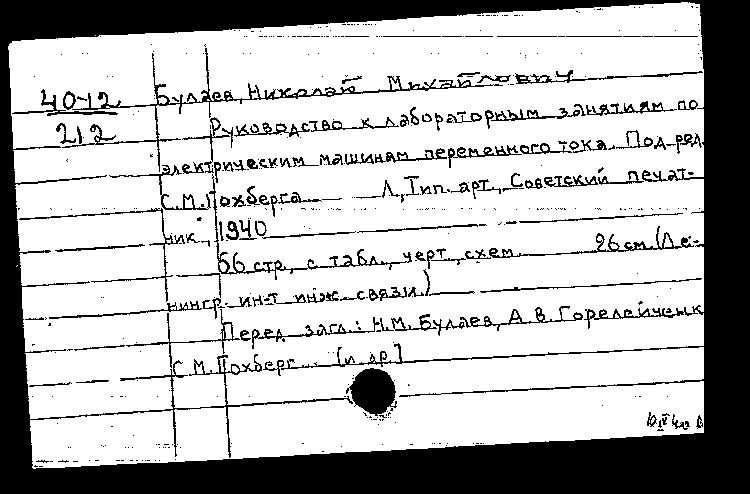 40-12
212
Булаев, Николай Михайлович
Руководство к лабораторным занятиям по
электрическим машинам переменного тока. Под ред.
С.М.Гохберга Л., Тип. арт. „Советский печат-
ник", 1940
56 стр., с табл., черт., схем. 26 см. (Ле-
нингр. ин-т инж. связи)
Перед загл.: Н.М. Булаев, А.В. Горелейченк
С.М.Гохберг... [и др.]